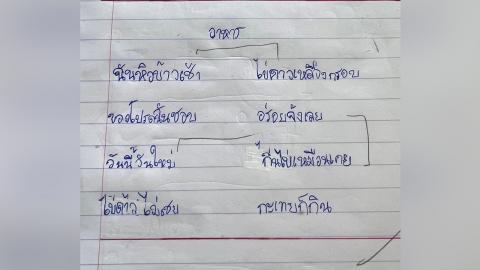 อาหาร
ฉันหิวข้าวเช้า ไข่ดาวเหลืองกรอบ
ของโปรดฉันชอบ อร่อยจังเลย
วันนี้วันใหม่ กินไข่เหมือนเคย
ไข่ กะเทยก็กิน